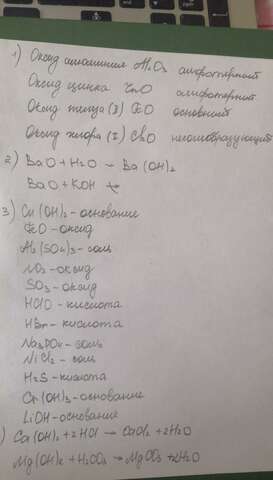 1) Оксид алюминия Al₂O₃ амфотерный
Оксид цинка ZnO амфотерный
Оксид железа (II) FeO основный
Оксид хлора (I) Cl₂O несолеобразующий
2) BaO + H₂O → Ba(OH)₂
BaO + KOH ↛
3) Cu(OH)₂ - основание
FeO - оксид
Al₂(SO₄)₃ - соль
NO₂ - оксид
SO₃ - оксид
HClO - кислота
HBr - кислота
Na₃PO₄ - соль
NiCl₂ - соль
H₂S - кислота
Cr(OH)₃ - основание
LiOH - основание
) Ca(OH)₂ + 2HCl → CaCl₂ + 2H₂O
Mg(OH)₂ + H₂CO₃ → MgCO₃ + 2H₂O